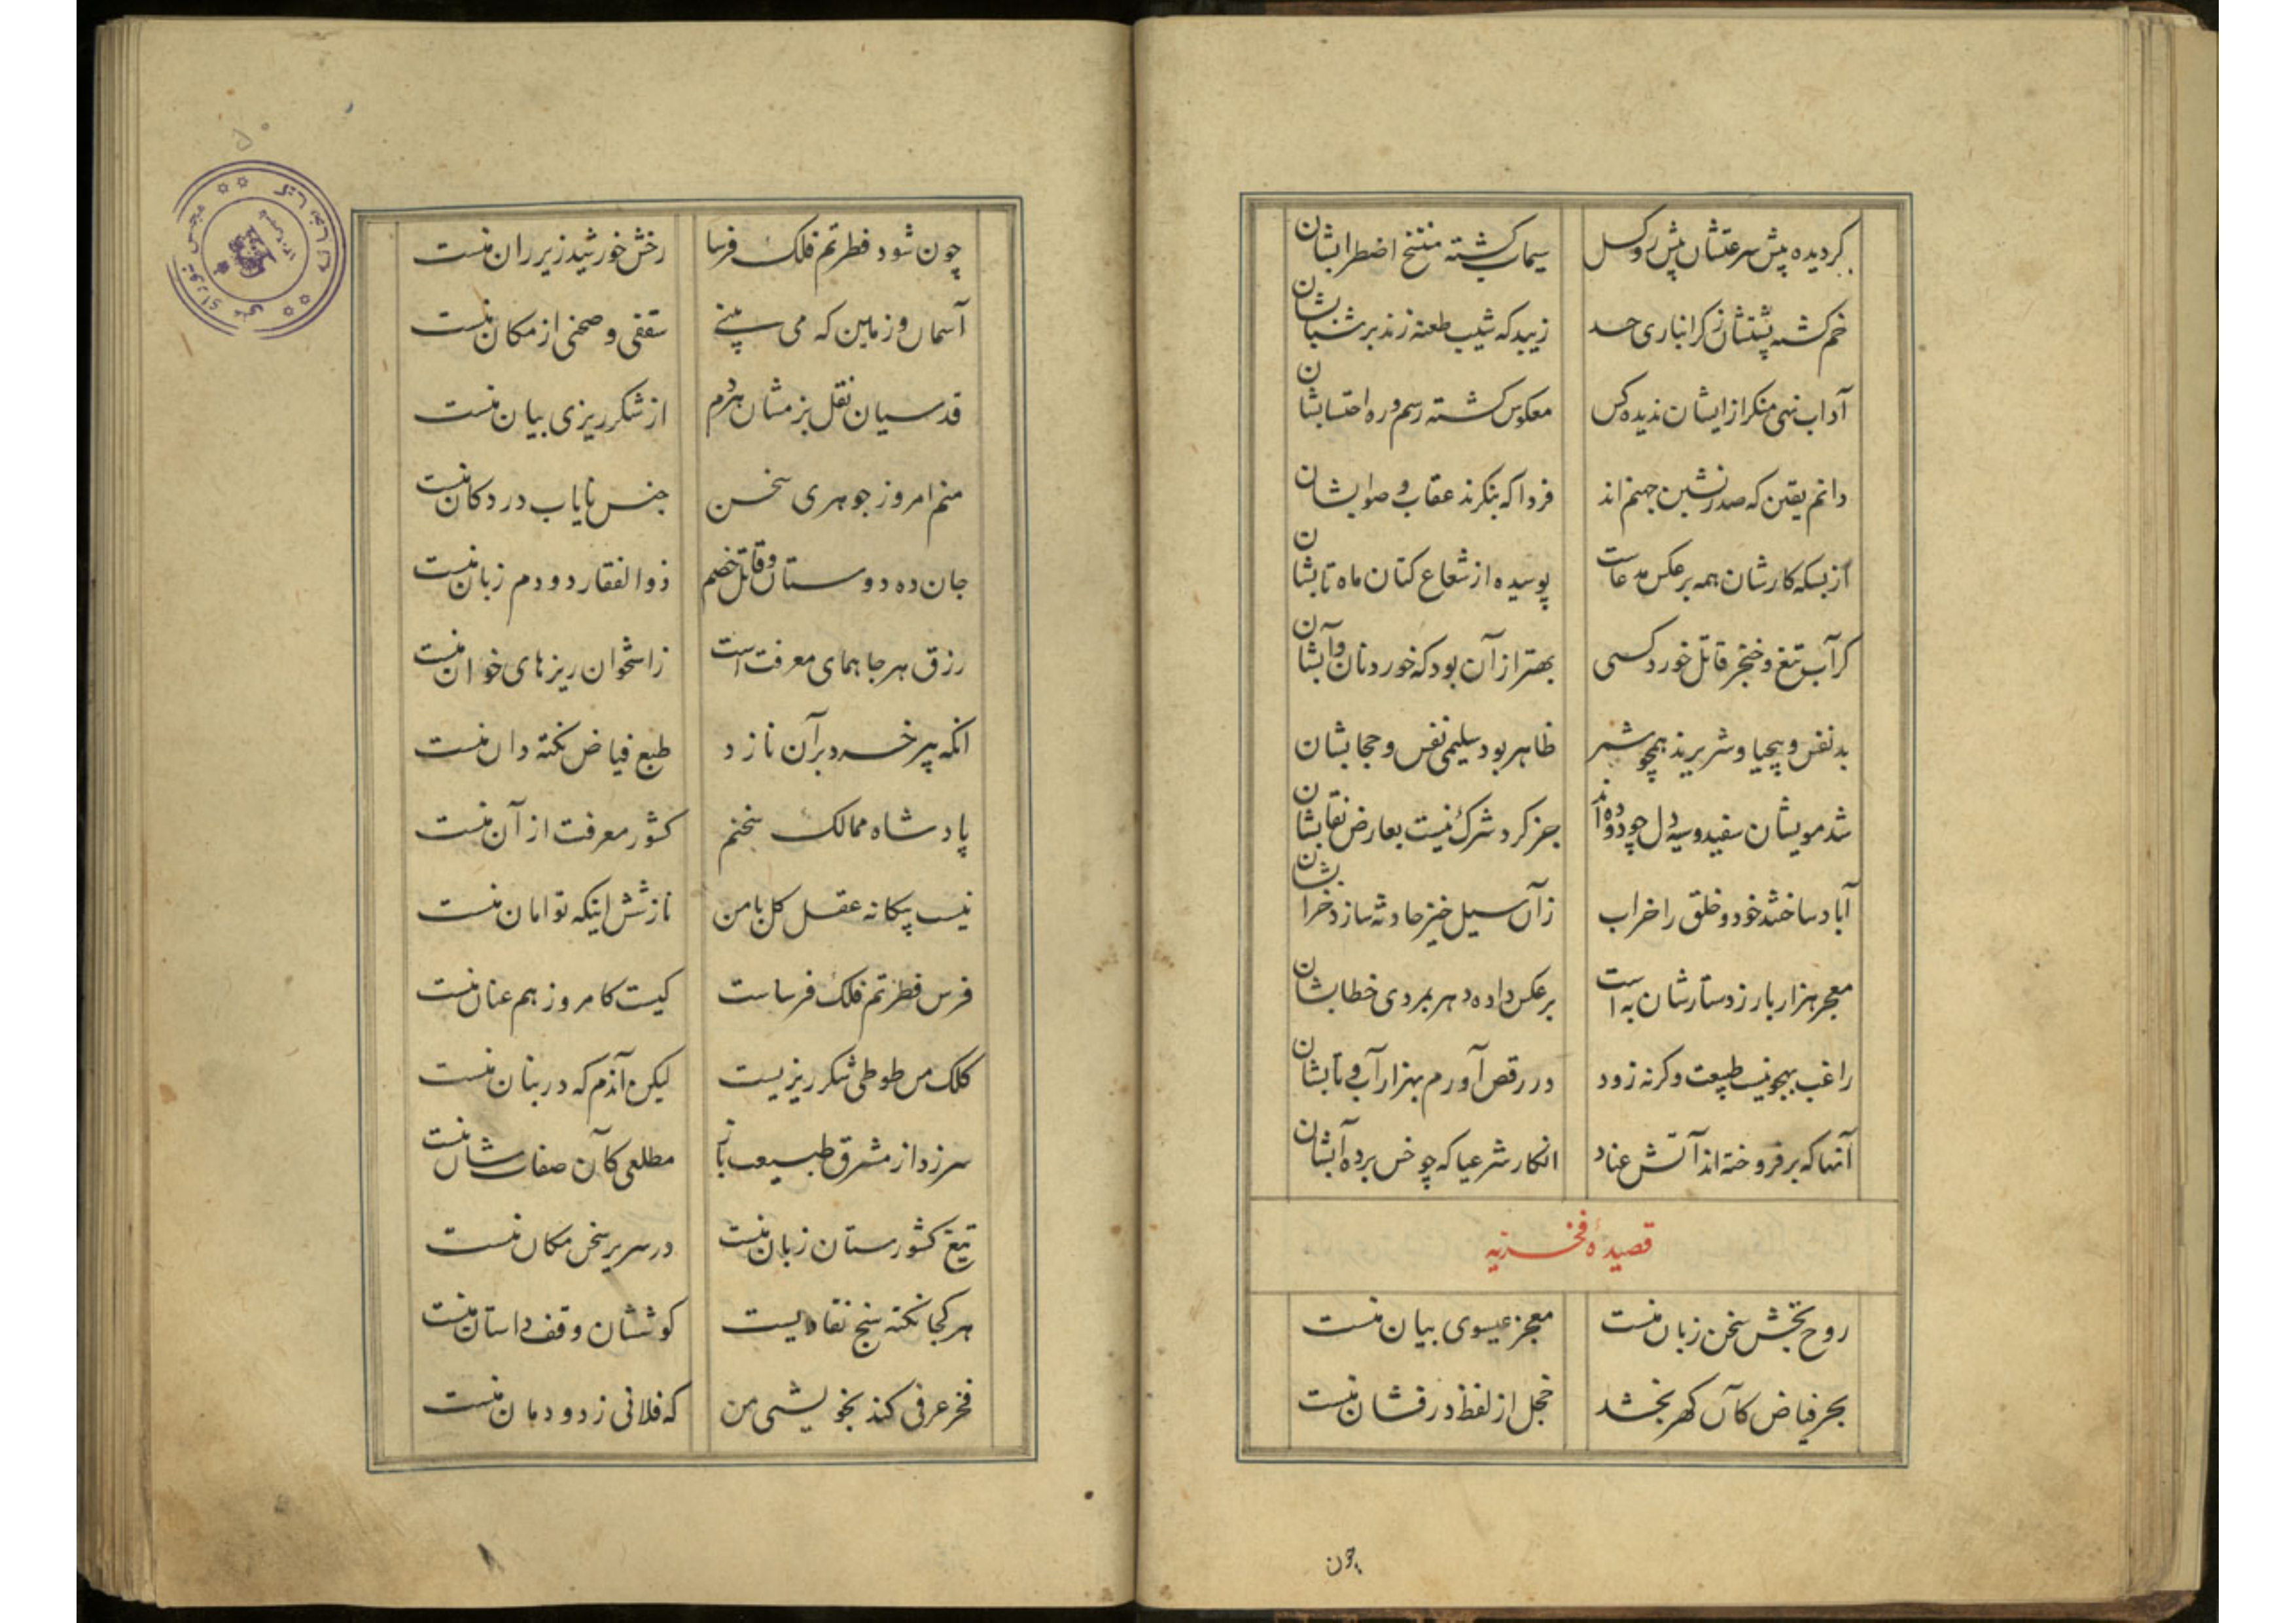 گردیده پیش سرعتشان پیش رو کسل سیماب گشته منتج اضطرابشان
خم گشته پشتشان ز کرانباری حسد زیبد که شیب طعنه زند بر شبابشان
آداب نهی منکر از ایشان ندیده کس معکوس گشته رسم و ره احتسابشان
دانم یقین که صدرنشین جهنم اند فردا که بنکرند عقاب و صوابشان
از بسکه کارشان همه برعکس مدعاست پوسیده از شعاع کتان ماه تابشان
کر آب تیغ و خنجر قاتل خورد کسی بهتر از آن بود که خورد نان و آبشان
بد نفس و بیحیا و شریرند همچو شمر ظاهر بود سلیمی نفس و حجابشان
شد مویشان سفید و سیه دل چو دوده اند جز کرد شرک نیست بعارض نقابشان
آباد ساختند خود و خلق را خراب زآن سیل خیز حادثه سازد خرابشان
معجر هزار بار ز دستارشان به است برعکس داده دهر بمردی خطابشان
راغب بهجو نیست طبیعت وکرنه زود در رقص آورم بهزار آب و تابشان
آنها که برفروخته اند آتش عناد انکار شرعیا که چو خس برده آبشان
قصیدهٔ فخریه
روح بخش سخن زبان منست معجز عیسوی بیان منست
بحر فیاض کآن کهر بخشد خجل از لفظ درفشان منست
چون
چون شود فطرتم فلک فرسا رخش خورشید زیر ران منست
آسمان و زمین که می بینے سقفی و صحنی از مکان منست
قدسیان نقل بزمشان هر دم از شکرریزی بیان منست
منم امروز جوهری سخن جنس نایاب در دکان منست
جان ده دوستان و قاتل خصم ذوالفقار دو دم زبان منست
رزق هر جا همای معرفت است ز استخوان ریزهای خوان منست
انکه پیر خرد بر آن نازد طبع فیاض نکته دان منست
پادشاه ممالک سخنم کشور معرفت از آن منست
نیست بیکانه عقل کل با من نازشش اینکه توامان منست
فرس فطرتم فلک فرساست کیست کامروز هم عنان منست
کلک من طوطی شکرریزیست لیکن آندم که در بنان منست
سرزد از مشرق طبیعت باز مطلعی کآن صفات شان منست
تیغ کشورستان زبان منست در سریر سخن مکان منست
هر کجا نکته سنج نقادیست کوششان وقف داستان منست
فخر عرفی کند بخویشی من که فلانی ز دودمان منست